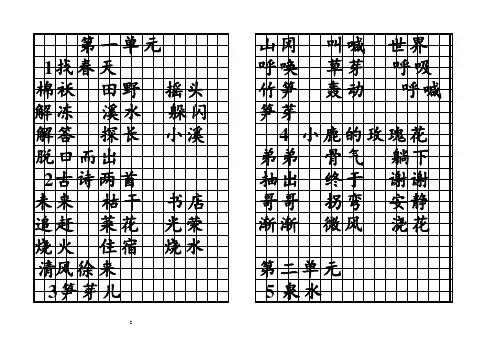 第一单元
1找春天
棉袄 田野 摇头
解冻 溪水 躲闪
解答 探长 小溪
脱口而出
2古诗两首
未来 枯干 书店
追赶 菜花 光荣
烧火 住宿 烧水
清风徐来
3笋芽儿
山冈 叫喊 世界
呼唤 草芽 呼吸
竹笋 轰动 呼喊
笋芽
4 小鹿的玫瑰花
弟弟 骨气 躺下
抽出 终于 谢谢
哥哥 拐弯 安静
渐渐 微风 浇花
第二单元
5泉水